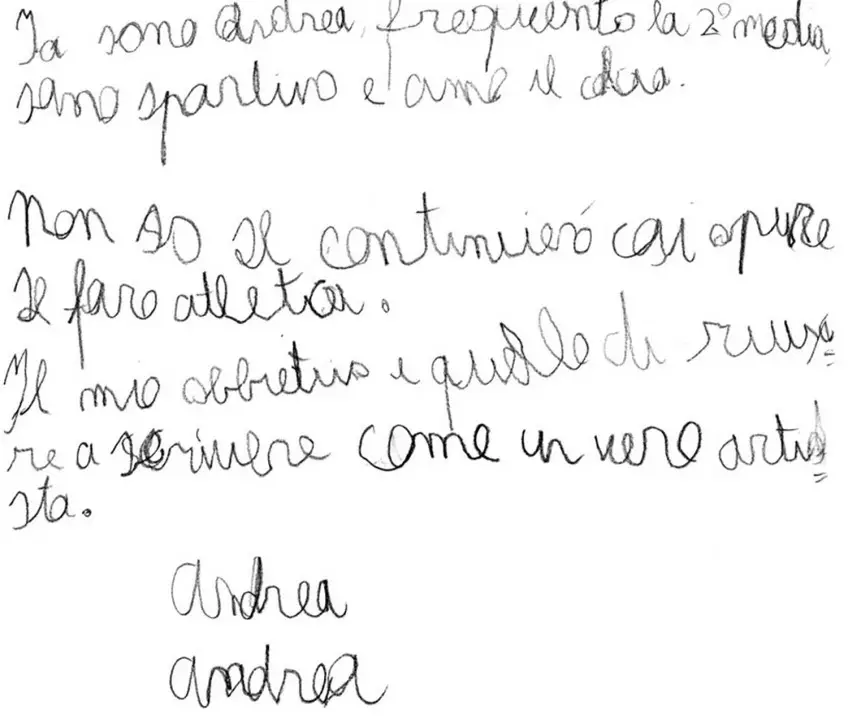 Io sono Andrea, frequento la 2° media,
sono sportivo e amo il
Non so se continuerò cosi opure
se faro atletica.
Il mio obbietivo e quello di riusci=
re a scrivere come un vero arti=
sta.
Andrea
Andrea